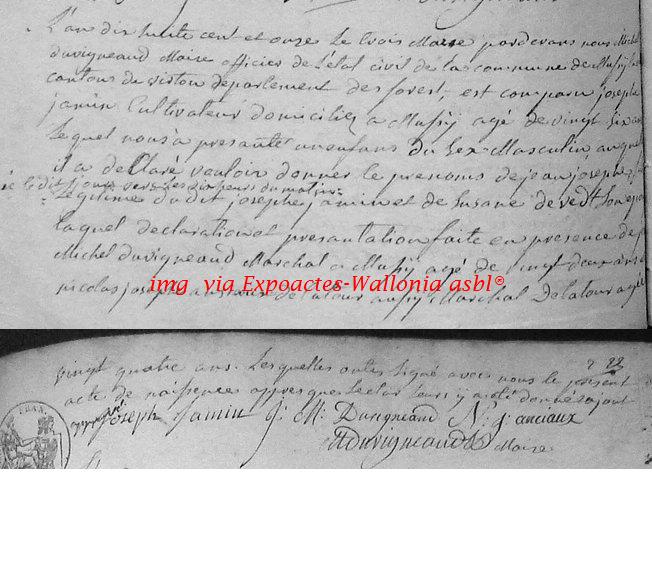 L'an dix huite cent et onze le trois Mare pardevans nous Michel
duvigneaud Maire officier de l'état civil de la commune de Mussÿ
canton du virton departement des forest, est comparu joseph
jamin Cultivateur domicilies a Mussÿ agé de vingt six ans
Lequel nous a presanté un enfans du Sex Masculin auquel
il a declaré vauloir donner le prenoms de jean joseph
né le dit jour vers les six heurs du matin
Legitime du dit joseph jamin et de Susane de
laquel declaration et presantation faite en presence de
Michel duvigneaud Marchal a Mussÿ agé de vingt deux ans
nicolas joseph anciaux de latour aussÿ Marchal de latour agé
img via Expoactes-Wallonia asbl®
vingt quatre ans. Lesquelles ont signé avec nous le présent
22
acte de naissences appres que lectur leurs y a été donné
joseph Jamin j. M. Duvigneaud N: j anciaux
Duvigneaud
Maire